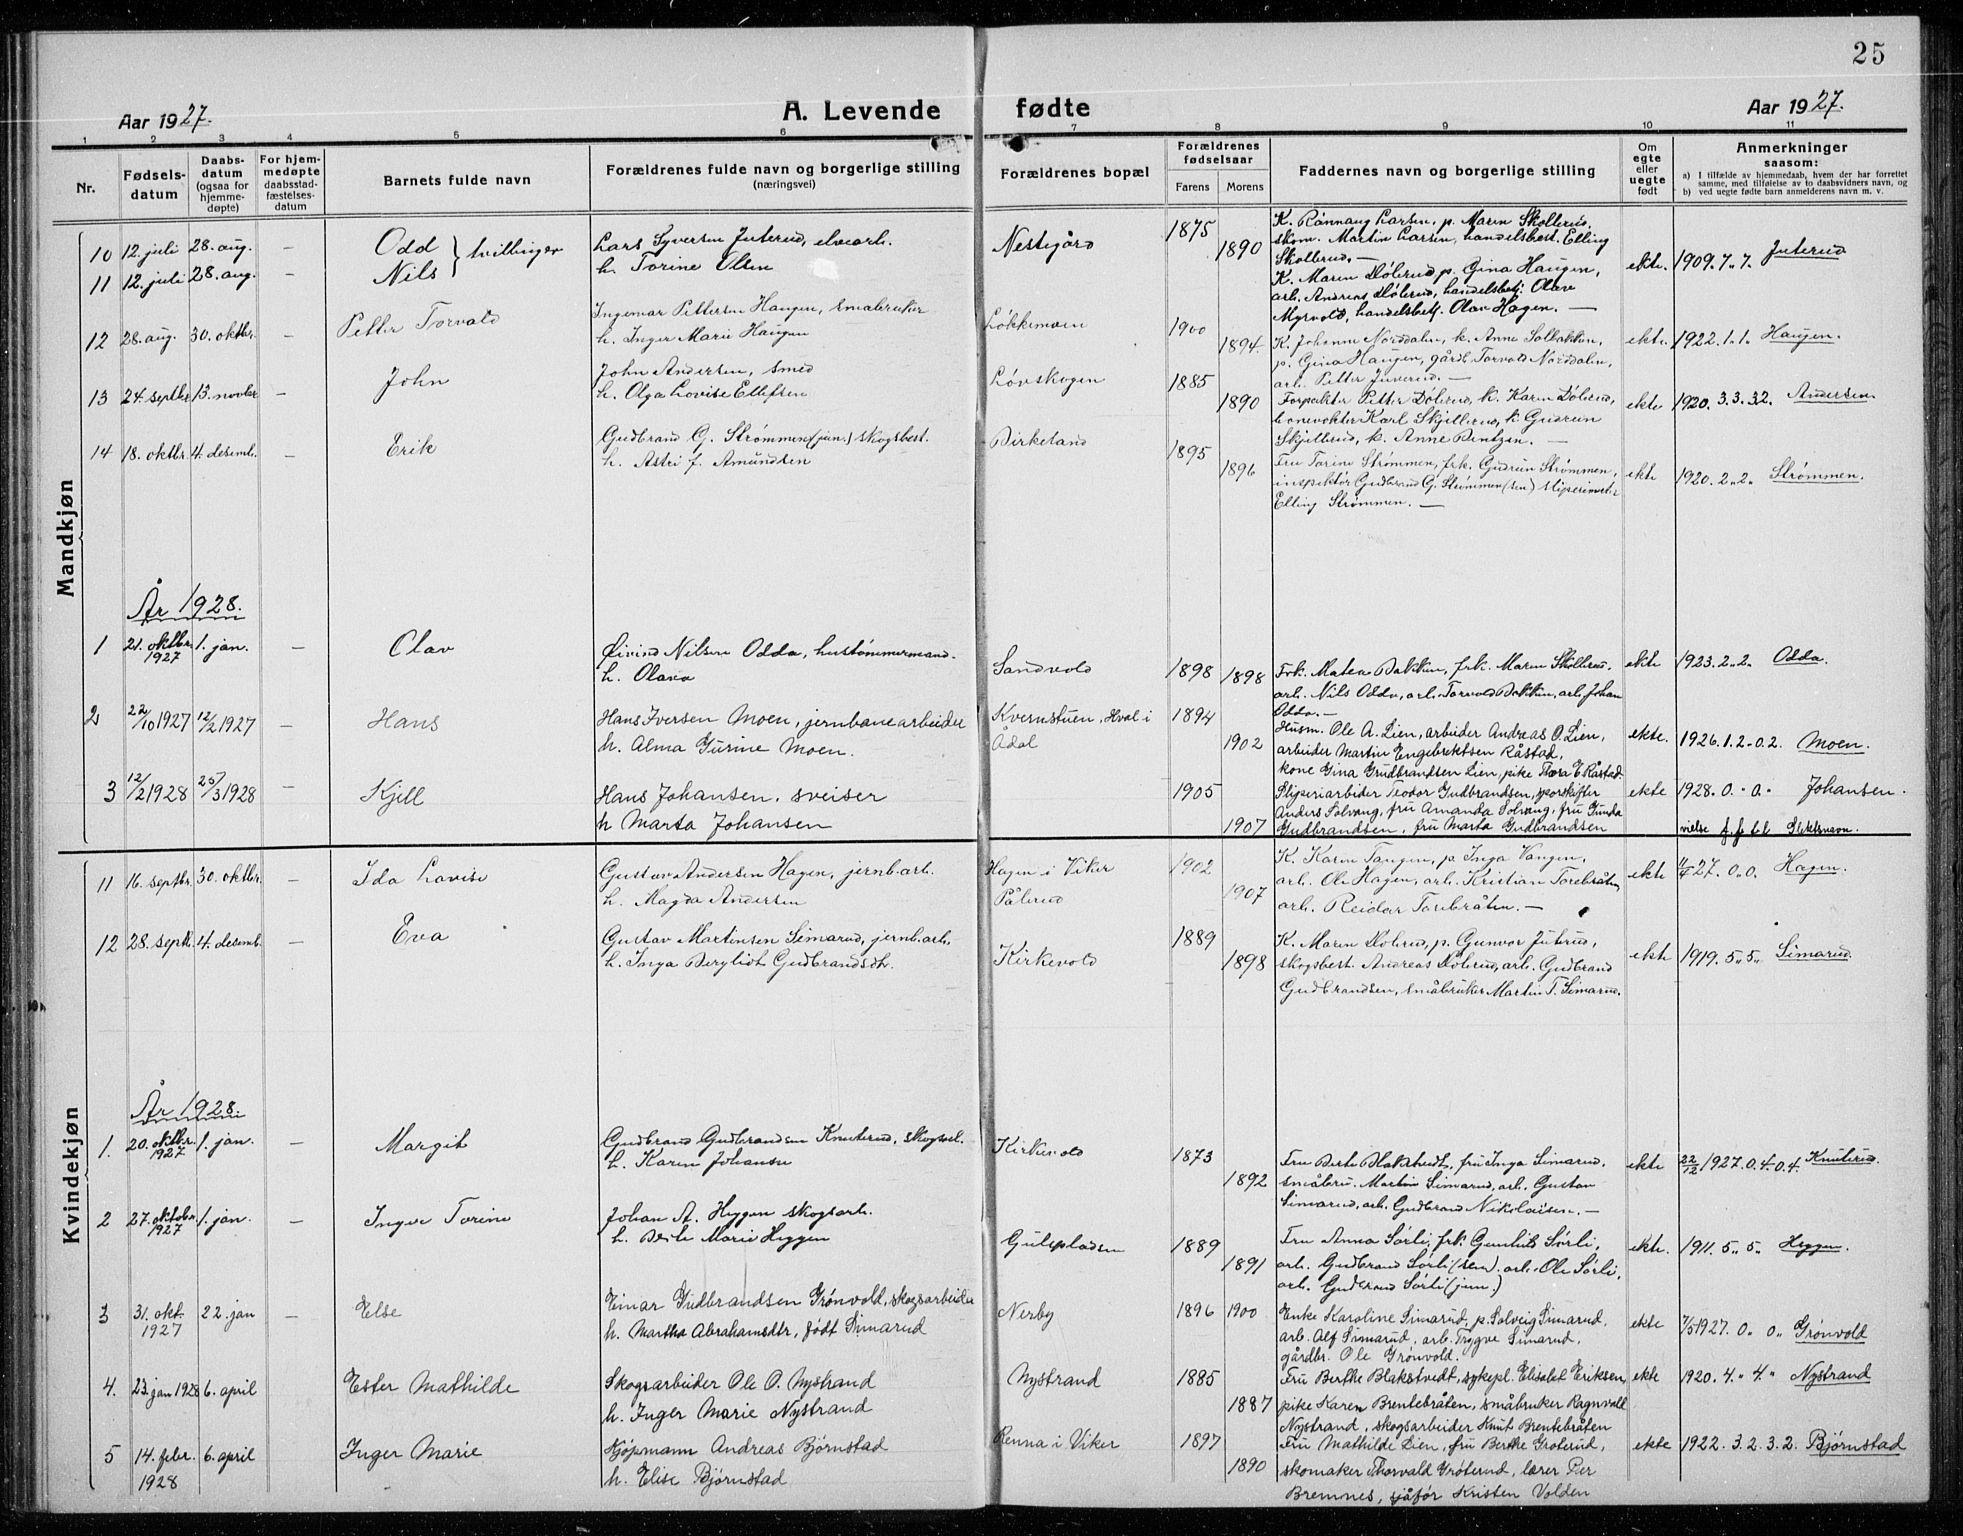 25
Aar 1927.
A. Levende fødte
Aar 1927.
1 2 3 4 5 6 7 8 9 10 11
Nr.
Fødsels-
datum
Daabs-
datum
(ogsaa for
hjemme-
døpte)
For hjem-
medøpte
daabsstad-
fæstelses-
datum
Barnets fulde navn
Forældrenes fulde navn og borgerlige stilling
(næringsvei)
Forældrenes bopæl
Forældrenes
fødselsaar
Farens Morens
Faddernes navn og borgerlige stilling
Om
egte
eller
uegte
født
Anmerkninger
saasom:
a) I tilfælde av hjemmedaab, hvem der har forrettet
samme, med tilføielse av to daabsvidners navn, og
b) ved uegte fødte barn anmelderens navn m. v.
Mandkjøn
10 12. juli 28. aug. — Odd } tvillinger
11 12. juli 28. aug. — Nils
Lars Syversen Juterud, elvearb.
h. Torine Olsen
Nestegård
1875 1890
K. Rønnaug Larsen, p. Maren Skollerud,
skom. Martin Larsen, handelsbest. Elling
Skollerud. —
K. Maren Dølerud p. Gina Haugen,
arb. Andreas Dølerud, handelsbetj. Olav
Myrvold, handelsbetj. Olav Hagen. —
ekte. 1909. 7. 7. Juterud
12 28. aug. 30. oktbr. — Petter Torvald
Ingemar Pettersen Haugen, småbruker
h. Inger Marie Haugen
Løkkemoen
1900 1894.
K. Johanne Norddalen, k. Anne Solbakken,
p. Gina Haugen, gårdb. Torvald Norddalen,
arb. Petter Juverud. —
ekte. 1922. 1. 1. Haugen.
13 24. septbr. 13. novbr. — John
John Andersen, smed
h. Olga Lovise Ellefsen
Løvskogen
1885 1890
Forpakter Petter Dølerud, k. Karen Dølerud,
bonevokter Karl Skjellerud, k. Gudrun
Skjellerud, k. Anne Bentzen. —
ekte 1920. 3. 3. 32. Andersen.
14 18. oktbr. 4. desemb. — Erik
Gudbrand G. Strømmen (jun.) skogsbest.
h. Astri f. Amundsen
Birkeland
1895 1896
Fru Torine Strømmen, frk. Gudrun Strømmen,
inspektør Gudbrand G. Strømmen (sen) sliperimester
Elling Strømmen. —
ekte 1920. 2. 2. Strømmen.
År 1928.
1 21. oktbr. 1927 1. jan. — Olav
Øivind Nilsen Odda, hustømmermand.
h. Olava
Sandvold
1898 1898
Frk. Matea Bakken, frk. Maren Skollerud,
arb. Nils Odda, arb. Torvald Bakken, arb. Johan
Odda. —
ekte 1923. 2. 2. Odda.
2 22/10 1927 12/2 1927 — Hans
Hans Iversen Moen, jernbanearbeider
h. Alma Gurine Moen.
Kvernstuen, Hval i
Ådal
1894 1902
Husm. Ole A. Lien, arbeider Andreas O. Lien,
arbeider Martin Engebrektsen Råstad,
kone Gina Gudbrandsen Lien, pike Thora E. Råstad.
ekte. 1926. 1. 2. 0. 2. Moen.
3 12/2 1928 25/3 1928 — Kjell
Hans Johansen, sveiser
h Marta Johansen
1905 1907
Sliperiarbeider Teodor Gudbrandsen, sporskifter
Anders Solvang, fru Amanda Solvang, fru Gunda
Gudbrandsen, fru Marta Gudbrandsen
ekte 1928. 0. 0. Johansen.
vielse
Slektsnavn.
Kvindekjøn
11 16. septbr. 30. oktbr. — Ida Lovise
Gustav Andersen Hagen, jernb.arb.
h. Magda Andersen
Hagen i Viker
Pålerud
1902 1907
K. Karen Tangen, p. Inga Vangen,
arb. Ole Hagen, arb. Kristian Torebråten,
arb. Reidar Torebråten. —
ekte 27. 0. 0. Hagen.
12 28. septbr. 4. desemb. — Eva
Gustav Martinsen Simarud, jernb.arb.
h. Inga Bergliot Gudbrandsdt.
Kirkevold
1889 1898
K. Maren Dølerud, p. Gunvor Juterud,
skogsbest. Andreas Dølerud, arb. Gudbrand
Gudbrandsen, småbruker Martin T. Simarud.
ekte 1919. 5. 5. Simarud.
År 1928.
1. 20. oktbr. 1927 1. jan. — Margit
Gudbrand Gudbrandsen Knuterud, skogsel.
h. Karen Johanne
Kirkevold
1873 1892
Fru Berte Blakstvedt, fru Inga Simarud,
småbru. Martin Simarud, arb. Gustav
Simarud, arb. Gudbrand Nikolaisen. —
ekte 22/12 1927. 0. 4. 0. 4. Knuterud.
2 27. oktobr. 1927 1. jan. — Inger Torine
Johan A. Heggen skogsarb.
h. Berte Marie Heggen
Gulspladsen
1889 1891
Fru Anna Sørli, frk. Gunhild Sørli,
arb. Gudbrand Sørli (sen). arb. Ole Sørli,
arb. Gudbrand Sørli (jun.)
ekte. 1911. 5. 5. Heggen.
3 31. okt. 1927 22. jan — Else
Einar Gudbrandsen Grønvold, skogsarbeider
h. Martha Abrahamsdtr, født Simarud
Nerby
1896 1900
Enke Karoline Simarud, p. Solveig Simarud,
arb. Alf Simarud, arb. Trygve Simarud,
gårdbr. Ole Grønvold.
ekte 7/5 1927. 0. 0. Grønvold
4. 23. jan 1928 6. april Ester Mathilde
Skogsarbeider Ole O. Nystrand
h. Inger Marie Nystrand
Nystrand
1885 1887
Fru Berthe Blakstvedt, sykepl. Elisabet Eriksen,
pike Karen Brentebråten, småbruker Ragnvald
Nystrand, skogsarbeider Knut Brentebråten
ekte 1920. 4. 4. Nystrand
5 14. febr. 1928 6. april Inger Marie
Kjøpmann Andreas Bjørnstad
h. Elise Bjørnstad
Renna i Viker
1897 1890
Fru Mathilde Lien, fru Berthe Grøterud,
skomaker Thorvald Grøterud, lærer Per
Bremnes, sjåfør Kristen Volden
ekte 1922. 3. 2. 3. 2. Bjørnstad